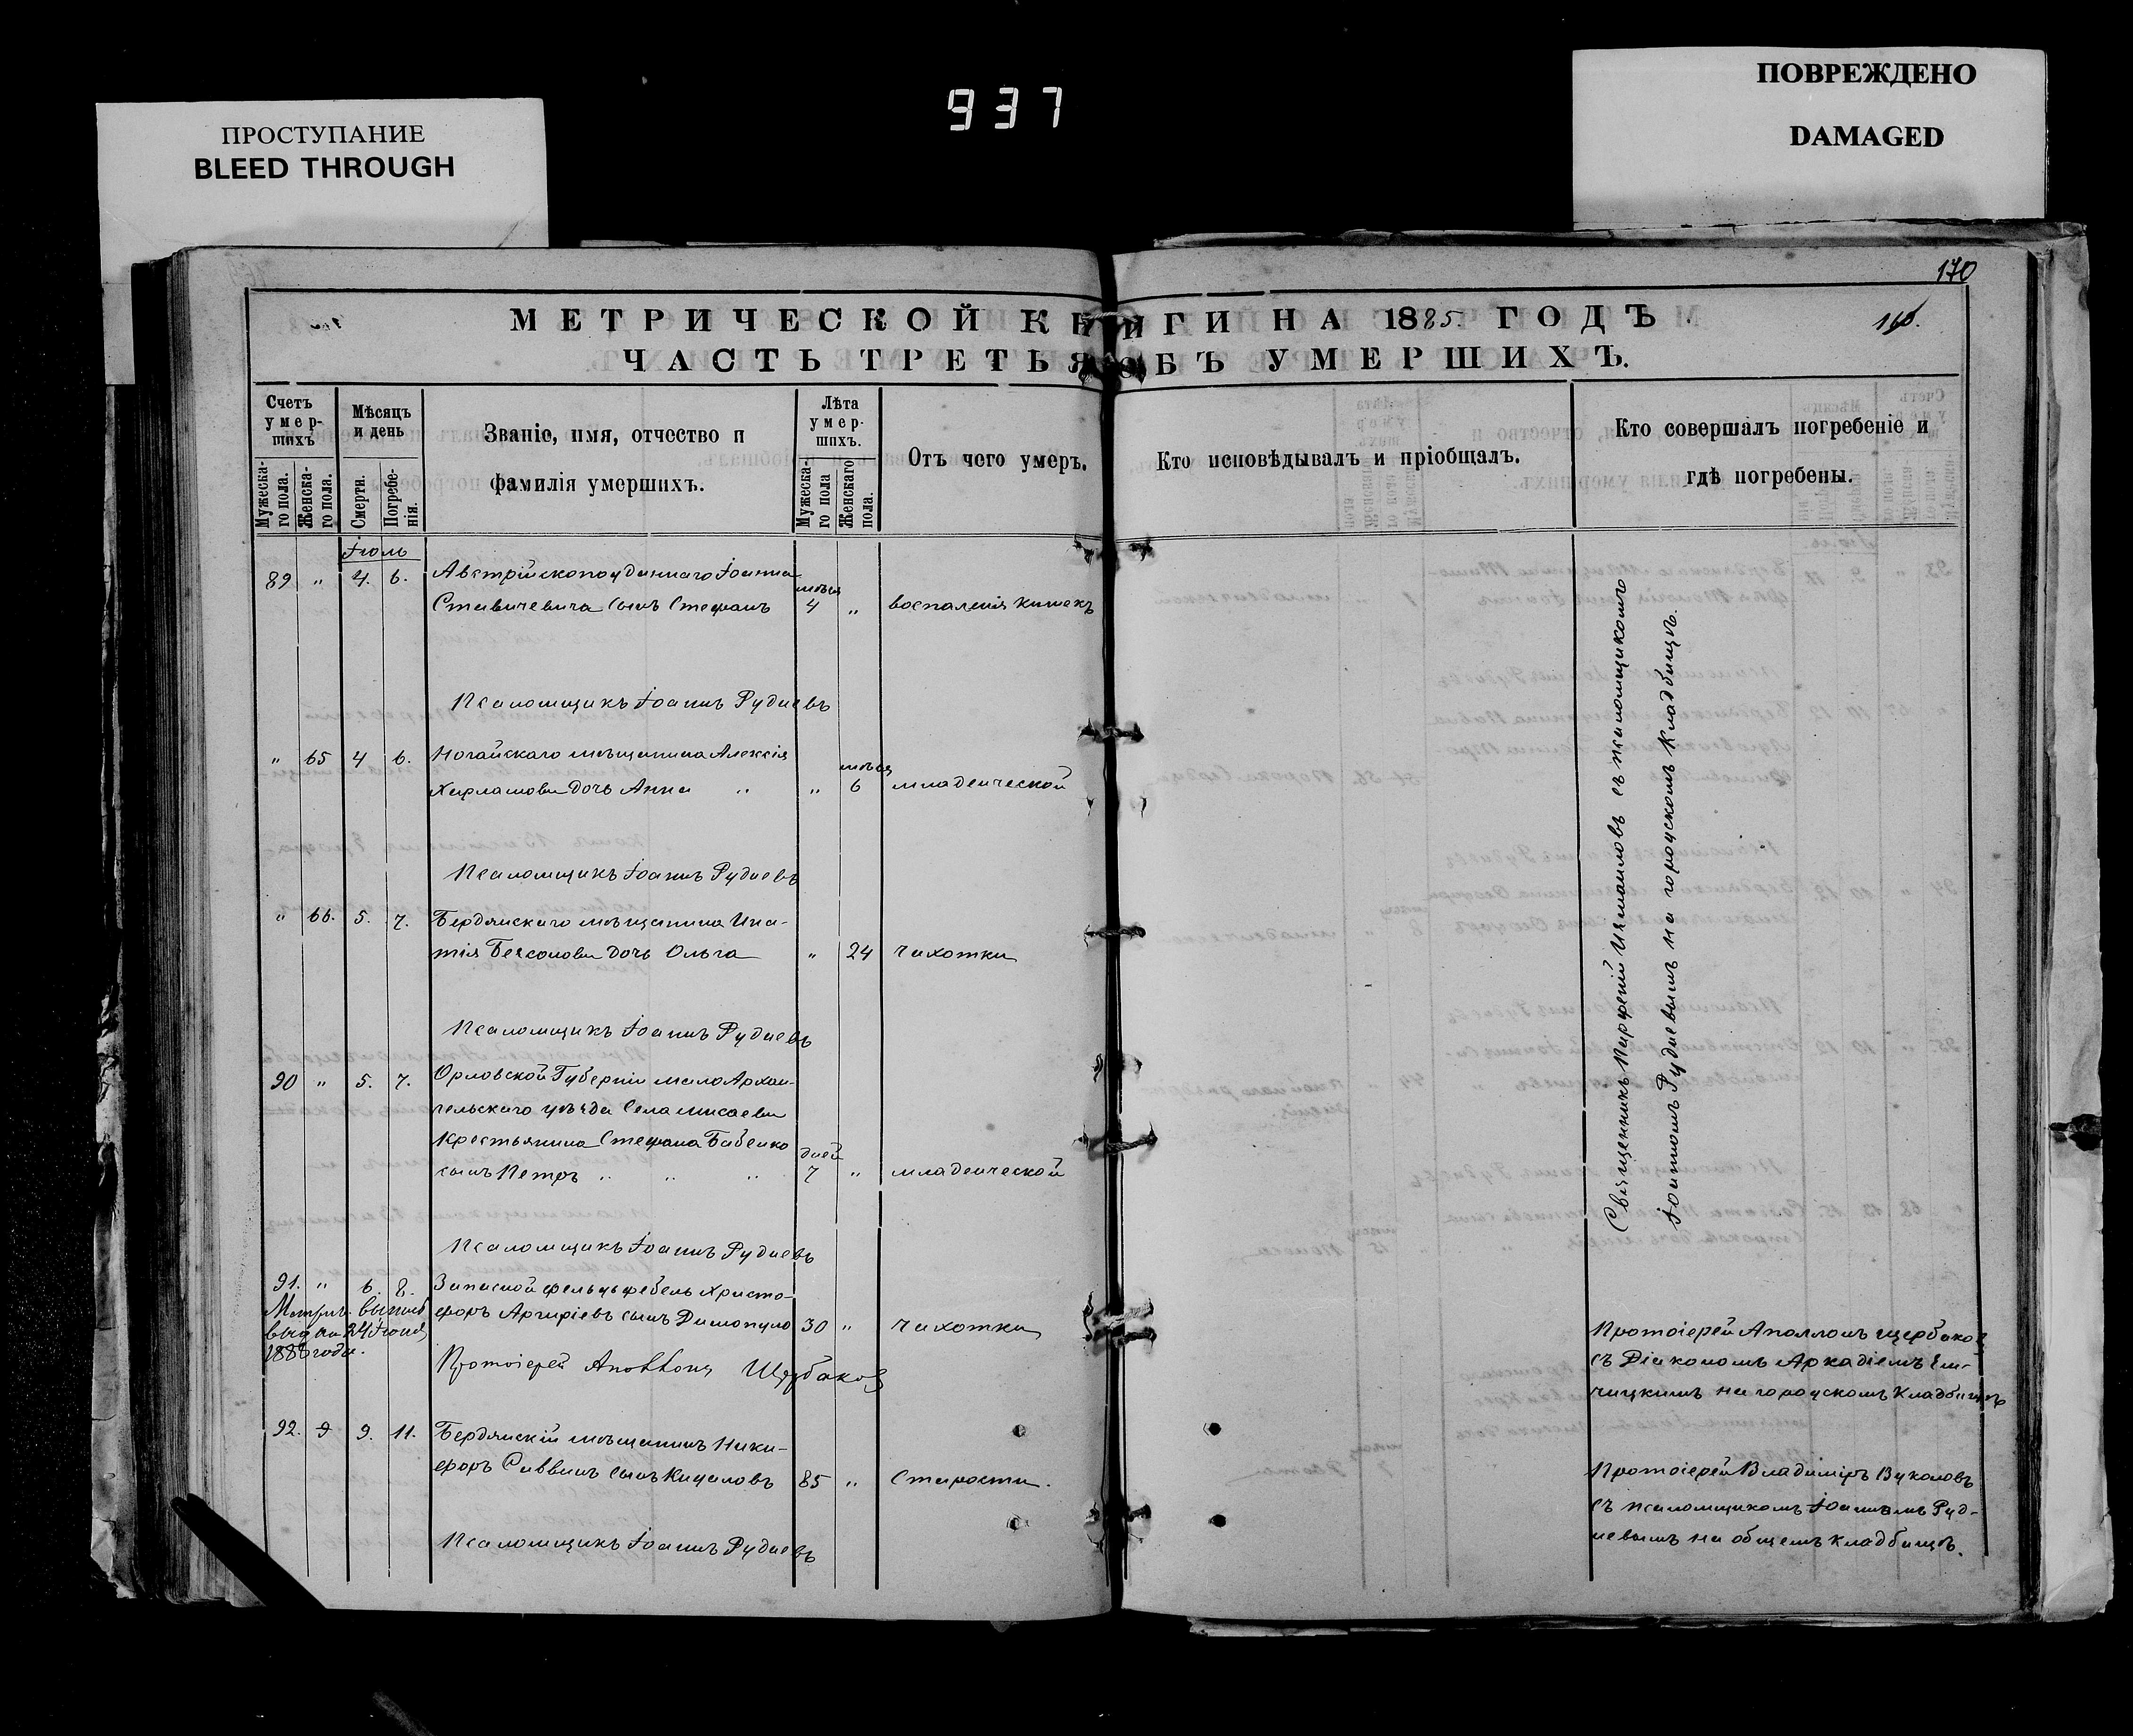 ПРОСТУПАНИЕ
BLEED THROUGH
937
ПОВРЕЖДЕНО
DAMAGED
170
МЕТРИЧЕСКОЙ КНИГИ НА 1885. ГОДЪ
ЧАСТЬ ТРЕТЬЯ ОБЪ УМЕРШИХЪ.
Счетъ умер-шихъ
Мужеска-го пола.
Женска-го пола.
Мѣсяцъ и день
Смерти.
Погребе-нія.
Званіе, имя, отчество и
фамилія умершихъ.
Лѣта умер-шихъ.
Мужеска-го пола
Женскаго пола.
Отъ чего умеръ.
Кто исповѣдывалъ и пріобщалъ.
Кто совершалъ погребеніе и
гдѣ погребены.
Іюль
89 " 4. 6. Австрійскоподаннаго Іоанна мѣся
Ставичевича сынъ Стефанъ 4 " воспаленія кишекъ
Псаломщикъ Іоаннъ Рудневъ
" 65 4 6. Ногайскаго мѣщанина Алексія мѣся
Харламова дочь Анна " " 6 младенческой
Псаломщикъ Іоаннъ Рудневъ
" 66. 5. 7. Бердянскаго мѣщанина Ипа-
тія Безсолова дочь Ольга " 24 чахотки
Псаломщикъ Іоаннъ Рудневъ
90 " 5. 7. Орловской Губерніи мало Архан-
гельскаго уѣзда Села
Крестьянина Стефана Бабенко дней
сынъ Петръ " " " 7 " младенческой
Псаломщикъ Іоаннъ Рудневъ
91. " 6. 8. Запасной фельдфебель Христо-
форъ Аргиріевъ сынъ Димопуло 30 " чахотки
выдана 24 Іюня
1886 года.
Протоіерей Аполлонъ Щербаковъ
92. 9. 11. Бердянскій мѣщанинъ Ники-
форъ Саввинъ сынъ Кицаловъ 85 " Старости.
Псаломщикъ Іоаннъ Рудневъ
Священникъ Парфеній Измаиловъ съ псаломщикомъ
Іоанномъ Рудневымъ на городскомъ кладбищѣ.
Протоіерей Аполлонъ Щербаковъ
съ Діакономъ Аркадіемъ
на городскомъ кладбищѣ
Протоіерей Владиміръ Вуколовъ
съ псаломщикомъ Іоанномъ Руд-
невымъ на общемъ кладбищѣ.